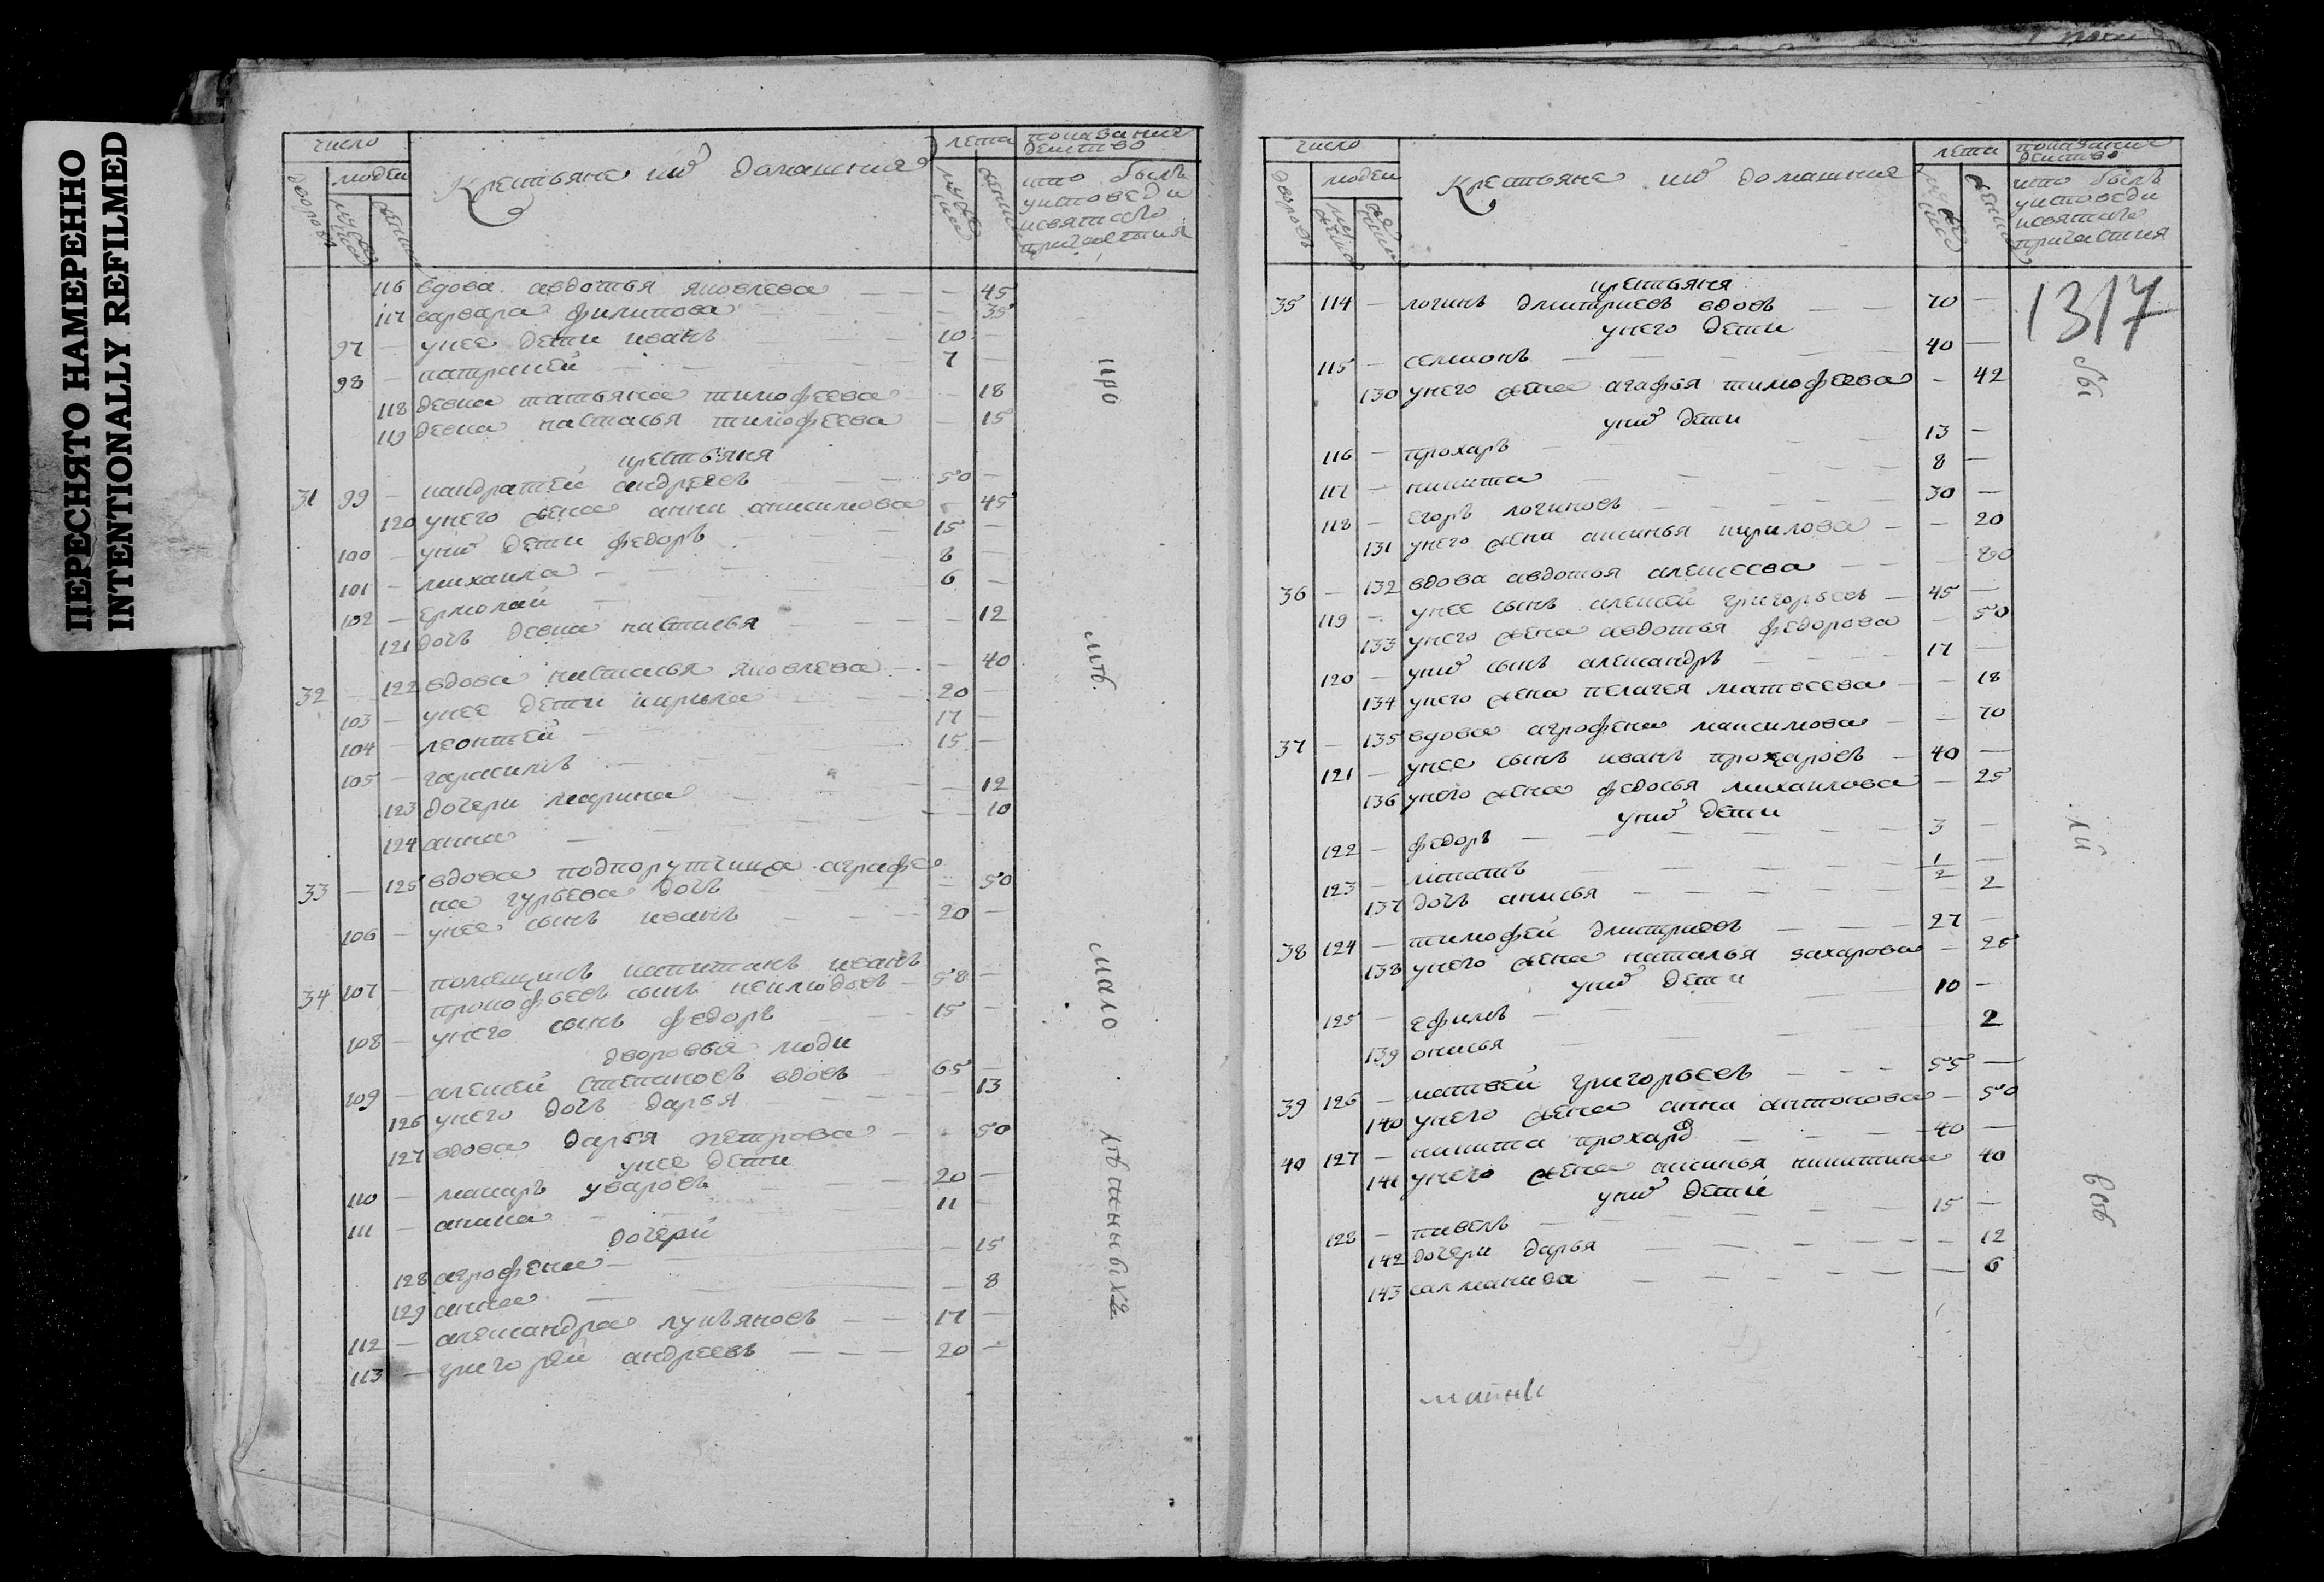 ПЕРЕСНЯТО НАМЕРЕННО
INTENTIONALLY REFILMED
число
людей
дворовъ
мужеска
женска
Крестьяне ихъ домашние
лета
мужеска
женска
показание
действо
кто былъ
уисповеди
исвятаго
причастия
116 вдова авдотья яковлева — — 45
117 варвара филипова — 35
97 — унее дети иванъ — — 10 —
98 — катратей — — 7 —
118 девка татьяна тимофеева — 18
119 девка настасья тимофеева — 15
крестьяня
31 99 — кандратей андреевъ — — 50 —
120 унего жена анна анисимова — 45
100 — унихъ дети федоръ — 15 —
101 — михаила — — 8 —
102 — ермолай — — 6 —
121 дочь девка настасья — — 12
32 — 122 вдова настасья яковлева — — 40
103 — унее дети кирила — — 20 —
104 — леонтей — 17 —
105 — гарасимъ — 15 —
123 дочери марина — — 12
124 анна — — — 10
33 — 125 вдова подпорутчица аграфе
на гурьева дочь — 50
106 — унее сынъ иванъ — — 20 —
34 107 — помещикъ капитанъ иванъ
прокофьевъ сынъ неклюдовъ — 58 —
108 — унего сынъ федоръ — 15 —
дворовыя люди
109 — алексей степановъ вдовъ — 65 —
126 унего дочь дарья — — 13
127 вдова дарья петрова — — 50
унее дети
110 — макаръ уваровъ — — 20 —
111 — аника — — 11 —
дочери
128 агрофена — — 15
129 анна — — 8
112 — александра лукьяновъ — — 17 —
113 — григорей андреевъ — — — 20 —
мало
число
людей
дворовъ
мужеска
женска
Крестьяне ихъ домашние
лета
мужеска
женска
показание
действо
кто былъ
уисповеди
исвятаго
причастия
1317
крестьяня
35 114 — логинъ дмитриевъ вдовъ — — 70 —
унего дети
115 — семионъ — — 40 —
130 унего жена агафья тимофеева — 42
унихъ дети
116 — прохаръ — — 13 —
117 — никита — — 8 —
118 — егоръ логиновъ — — 30 —
131 унего жена аксинья кирилова — — 20
36 — 132 вдова авдотья алексеева — — 80
119 — унее сынъ алексей григорьевъ — 45 —
133 унего жена авдотья федорова — 50
120 — унихъ сынъ александръ — — 17 —
134 унего жена пелагея матвеева — — 18
37 — 135 вдова агрофена максимова — — 70
121 — унее сынъ иванъ прохаровъ — 40 —
136 унего жена федосья михаилова — 25
унихъ дети
122 — федоръ — — — 3 —
123 — — — 1/2 —
137 дочь анисья — — — 2
38 124 — тимофей дмитриевъ — — — 27 —
138 унего жена наталья захарова — 25
унихъ дети
125 — ефимъ — — 10 —
139 онисья — 2
39 126 — матвей григорьевъ — — — 55 —
140 унего жена анна антонова — 50
40 127 — никита прохаровъ — — — 40 —
141 унего жена аксинья никитина 40
унихъ дети
128 — павелъ — — — 15 —
142 дочери дарья — — — 12
143 — — — 6